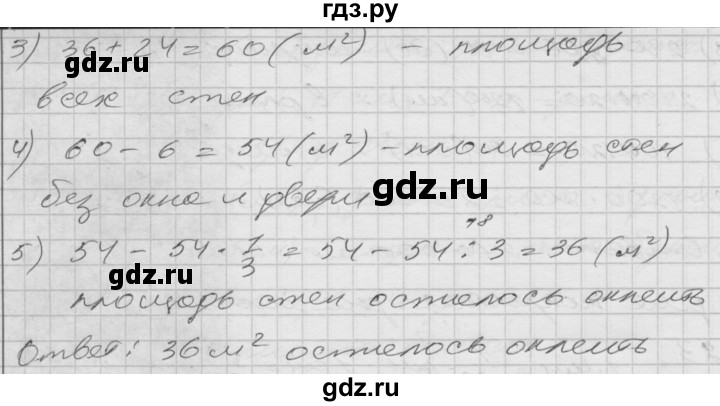 гдз.ру
3) 36 + 24 = 60 (м²) – площадь
gdz.ru
всех стен
4) 60 – 6 = 54 (м²) – площадь стен
gdz.ru
без окна и двери
18
5) 54 – 54 · 1/3 = 54 – 54 : 3 = 36 (м²)
gdz.ru
площадь стен осталось оклеить
Ответ: 36 м² осталось оклеить
gdz.ru